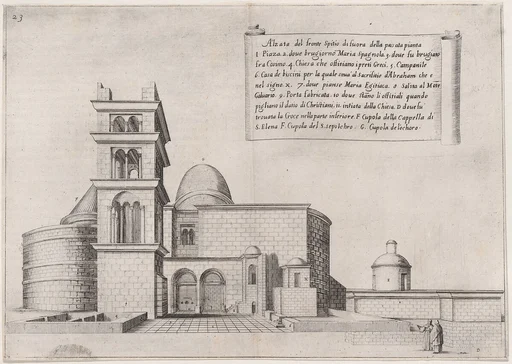 23
Alzata del fronte Spitio di fuora della passata pianta
1. Piaza. 2. doue brugiorno Maria Spagnola. 3. doue fu brugiato
fra Cosimo. 4. Chiesa che offitiano i preti Greci. 5. Campanile
6. Casa de biscini per la quale si ua al Sacrificio d'Abraham che e
nel signo X. 7. doue pianse Maria Egitiaca. 8. Salita al Mõte
Caluario. 9. Porta fabricata. 10 doue stãno li offitiali quando
pigliano il datio di Christiani. 11. intrata della Chiesa. D. doue fu
trouata la Croce nella parte inferiore. F. Cupola della Cappella di
S. Elena F. Cupola del S. sepolchro. G. Cupola de lo choro.